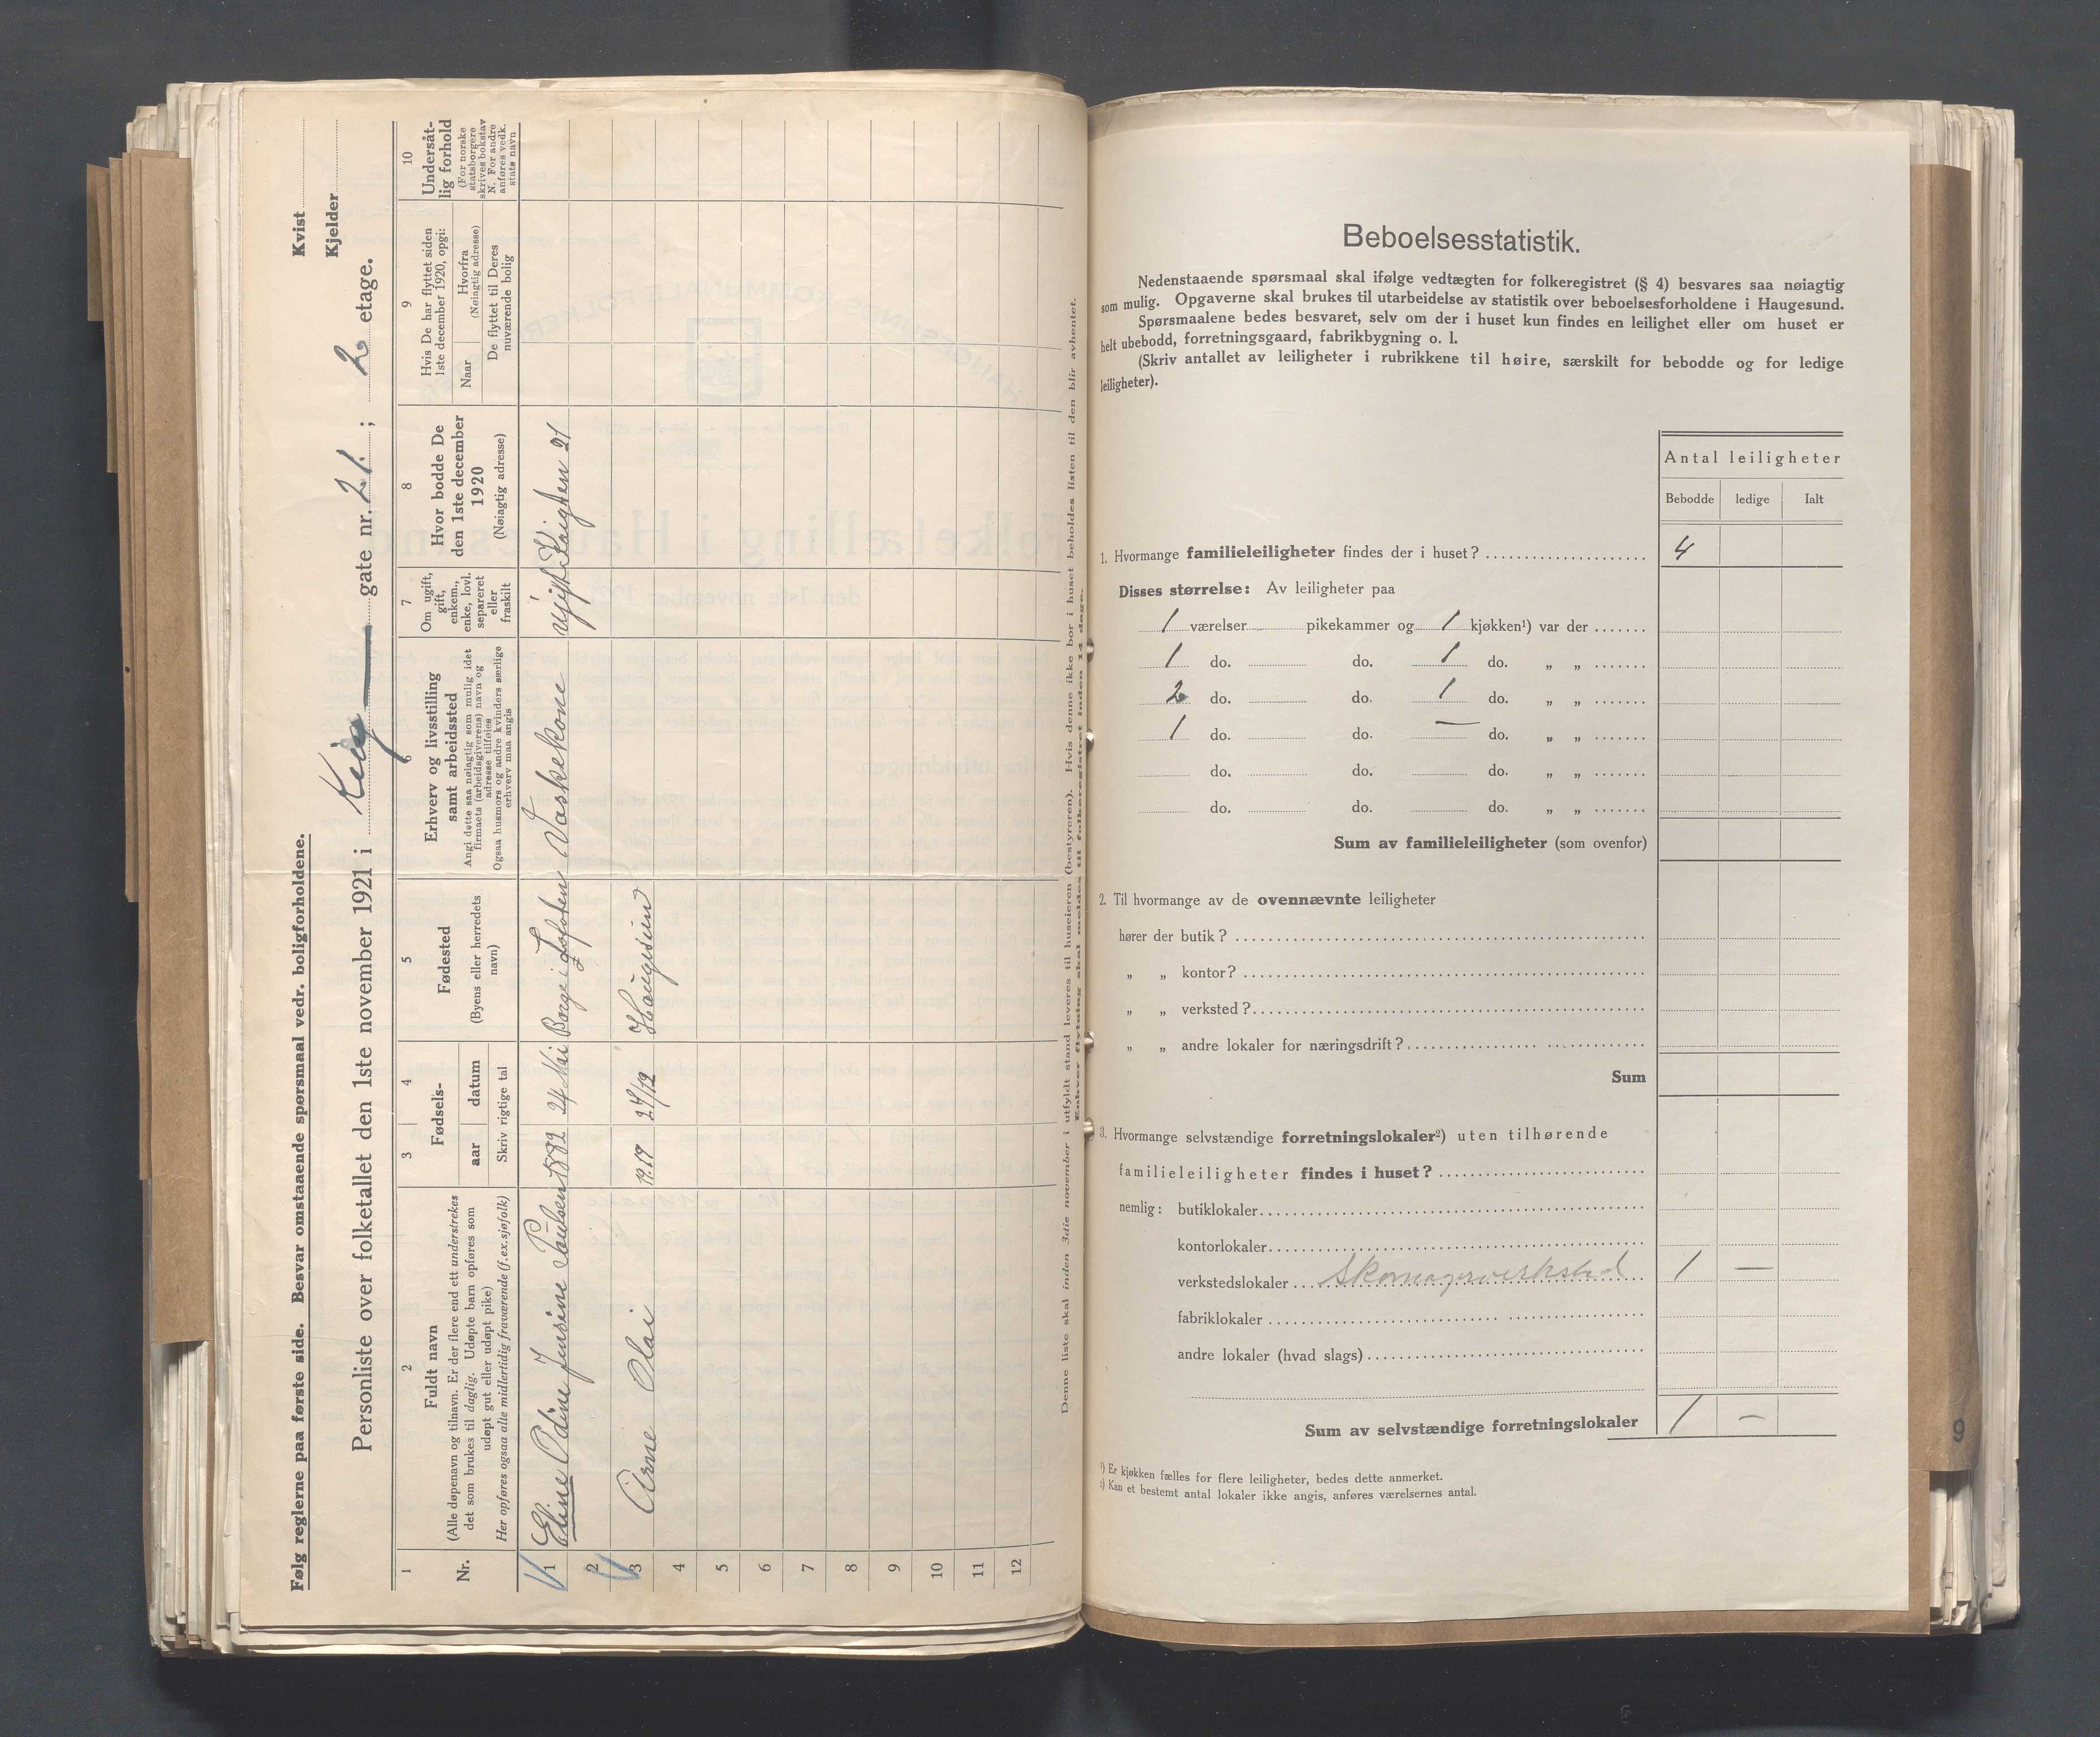 Følg reglerne paa første side. Besvar omstaaende spørsmaal vedr. boligforholdene.
Kvist
Kjelder
Personliste over folketallet den 1ste november 1921 i gate nr. 21. ; 2 etage.
1
2
3
4
5
6
7
8
9
10
Nr.
Fuldt navn
(Alle døpenavn og tilnavn. Er der flere end ett understrekes
det som brukes til daglig. Udøpte barn opføres som
udøpt gut eller udøpt pike)
Her opføres ogsaa alle midlertidig fraværende (f.ex.sjøfolk)
Fødsels-
aar
datum
Skriv rigtige tal
Fødested
(Byens eller herredets
navn)
Erhverv og livsstilling
samt arbeidssted
Angi dette saa nøiagtig som mulig idet
firmaets (arbeidsgiverens) navn og
adresse tilføies
Ogsaa husmors og andre kvinders særlige
erhverv maa angis
Om ugift,
gift,
enkem.,
enke, lovl.
separeret
eller
fraskilt
Hvor bodde De
den 1ste december
1920
(Nøiagtig adresse)
Hvis De har flyttet siden
1ste december 1920, opgi:
Naar
Hvorfra
(Nøiagtig adresse)
De flyttet til Deres
nuværende bolig
Undersåt-
lig forhold
(For norske
statsborgere
skrives bokstav
N. For andre
anføres vedk.
stats navn
1 Eline Odine Jensine Paulsen 1882 24 Mai Borge i Lofoten Vaskekone Ugift 21
2
3 Arne Olai 1919 27/12 Haugesund
4
5
6
7
8
9
10
11
12
Denne liste skal inden 3die november i utfyldt stand leveres til huseieren (bestyreren). Hvis denne ikke bor i huset beholdes listen til den blir avhentet.
Enhver flytning skal meldes til folkeregistret inden 14 dage.
Beboelsesstatistik.
Nedenstaaende spørsmaal skal ifølge vedtægten for folkeregistret (§ 4) besvares saa nøiagtig
som mulig. Opgaverne skal brukes til utarbeidelse av statistik over beboelsesforholdene i Haugesund.
Spørsmaalene bedes besvaret, selv om der i huset kun findes en leilighet eller om huset er
helt ubebodd, forretningsgaard, fabrikbygning o. l.
(Skriv antallet av leiligheter i rubrikkene til høire, særskilt for bebodde og for ledige
leiligheter).
Antal leiligheter
Bebodde ledige Ialt
1. Hvormange familieleiligheter findes der i huset? 4
Disses størrelse: Av leiligheter paa
1 værelser pikekammer og 1 kjøkken¹) var der
1 do. do. 1 do. „ „
2 do. do. 1 do. „ „
1 do. do. — do. „ „
do. do. do. „ „
do. do. do. „ „
Sum av familieleiligheter (som ovenfor)
2. Til hvormange av de ovennævnte leiligheter
hører der butik?
„ „ kontor?
„ „ verksted?
„ „ andre lokaler for næringsdrift?
Sum
3. Hvormange selvstændige forretningslokaler²) uten tilhørende
familieleiligheter findes i huset?
nemlig: butiklokaler
kontorlokaler
verkstedslokaler Skomagerverksted 1 —
fabriklokaler
andre lokaler (hvad slags)
Sum av selvstændige forretningslokaler 1 —
¹) Er kjøkken fælles for flere leiligheter, bedes dette anmerket.
²) Kan et bestemt antal lokaler ikke angis, anføres værelsernes antal.
9